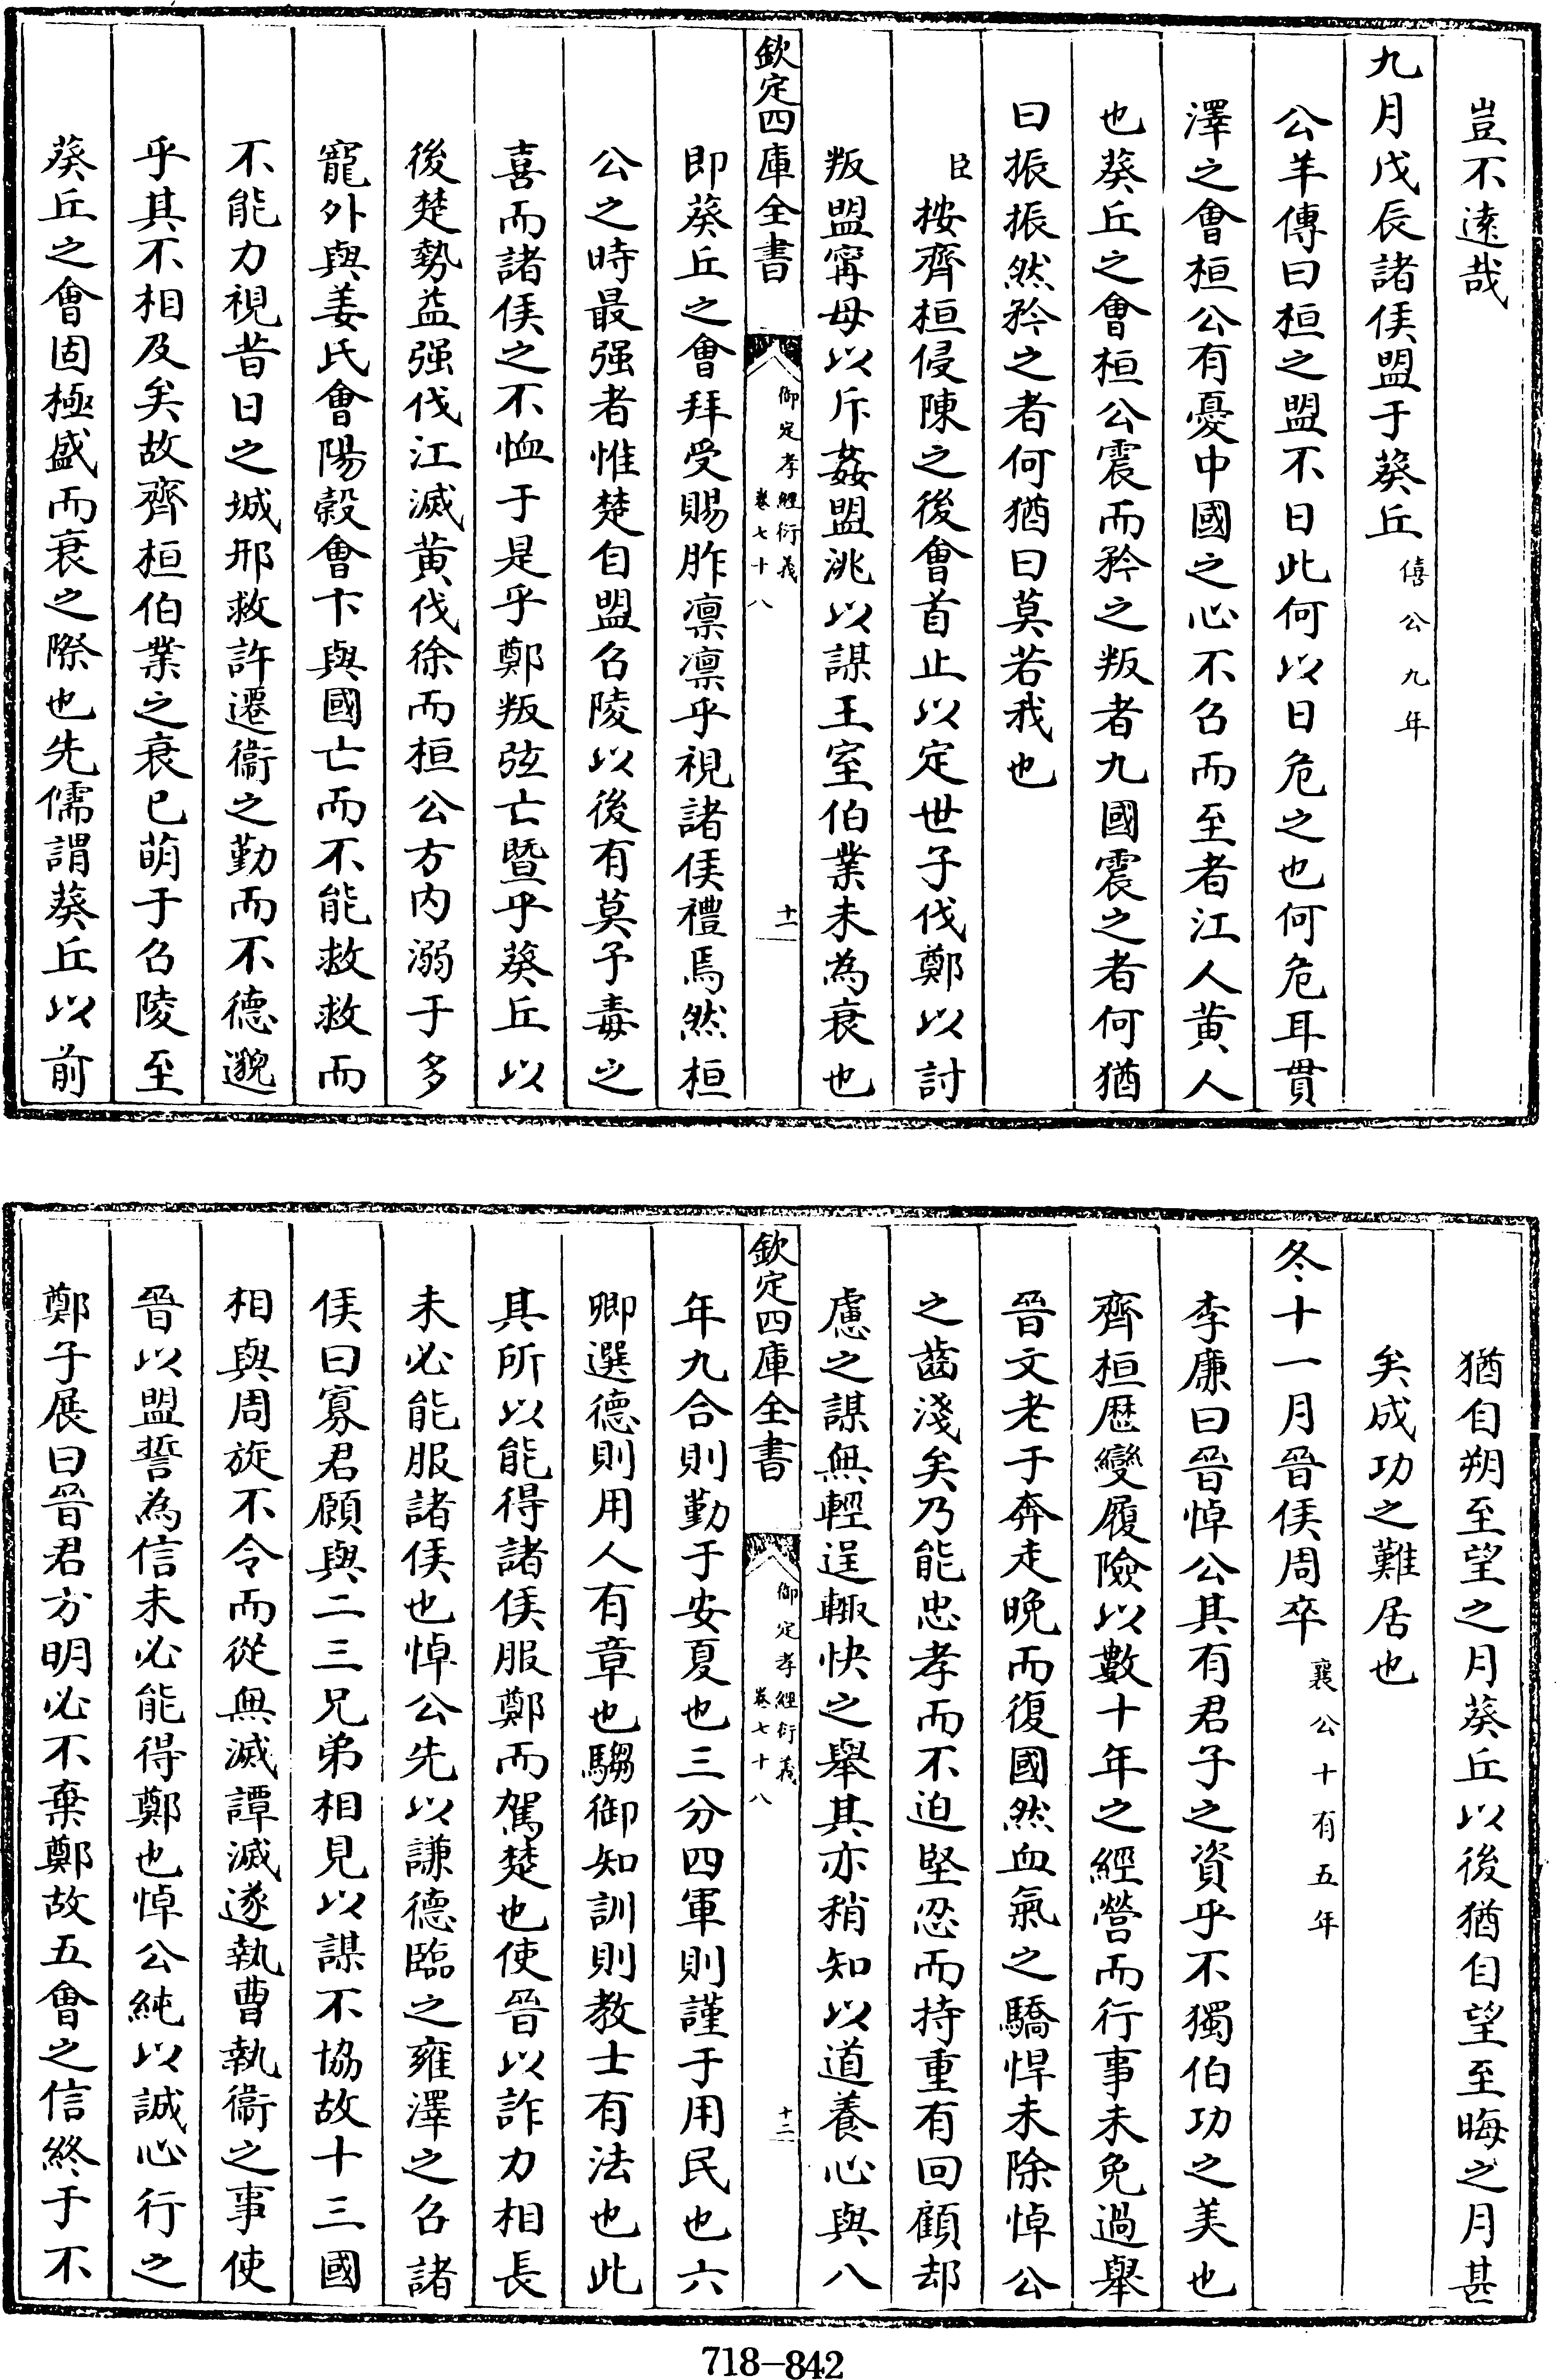 豈不遠哉
九月戊辰諸侯盟于葵丘僖公九年
公羊傳曰桓之盟不日此何以日危之也何危耳貫
澤之會桓公有憂中國之心不召而至者江人黄人
也葵丘之會桓公震而矜之叛者九國震之者何猶
曰振振然矜之者何猶曰莫若我也
臣按齊桓侵陳之後會首止以定世子伐鄭以討
叛盟甯母以斥姦盟洮以謀王室伯業未為衰也
欽定四庫全書
御定孝經衍義
卷七十八
十一
即葵丘之會拜受賜胙凛凛乎視諸侯禮焉然桓
公之時最强者惟楚自盟召陵以後有莫予毒之
喜而諸侯之不恤于是乎鄭叛弦亡暨乎葵丘以
後楚勢益强伐江滅黄伐徐而桓公方内溺于多
寵外與姜氏會陽穀會卞與國亡而不能救救而
不能力視昔日之城邢救許遷衞之勤而不德邈
乎其不相及矣故齊桓伯業之衰已萌于召陵至
葵丘之會固極盛而衰之際也先儒謂葵丘以前
猶自朔至望之月葵丘以後猶自望至晦之月甚
矣成功之難居也
冬十一月晉侯周卒襄公十有五年
李廉曰晉悼公其有君子之資乎不獨伯功之美也
齊桓歴變履險以數十年之經營而行事未免過舉
晉文老于奔走晚而復國然血氣之驕悍未除悼公
之齒淺矣乃能忠孝而不迫堅忍而持重有回顧却
慮之謀無輕逞輙快之舉其亦稍知以道養心與八
欽定四庫全書
御定孝經衍義
卷七十八
十二
年九合則勤于安夏也三分四軍則謹于用民也六
卿選德則用人有章也騶御知訓則教士有法也此
其所以能得諸侯服鄭而駕楚也使晉以詐力相長
未必能服諸侯也悼公先以謙德臨之雍澤之召諸
侯曰寡君願與二三兄弟相見以謀不協故十三國
相與周旋不令而從無滅譚滅遂執曹執衞之事使
晉以盟誓為信未必能得鄭也悼公純以誠心行之
鄭子展曰晉君方明必不棄鄭故五會之信終于不
718-842